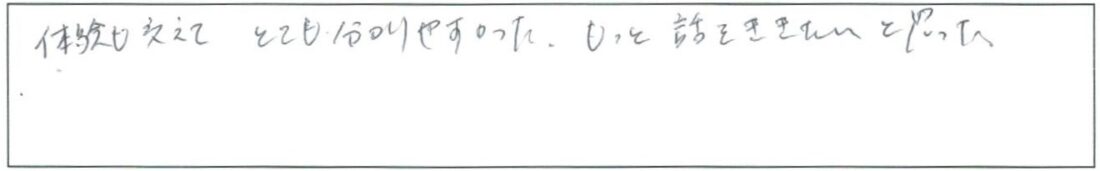 体験も交えて とても分かりやすかった. もっと話をききたいと思った、